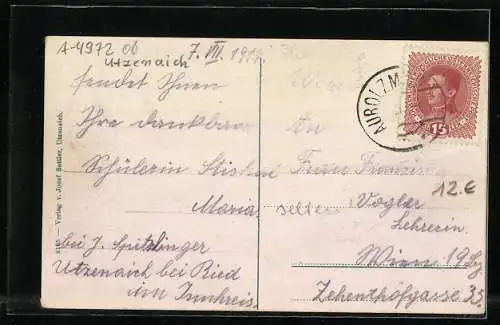 A-4972 06
Utzenaich
7. VII. 1918.
sendet Ihnen
Ihre dankbare
Schülerin
Maria
bei J. Spitzlinger
Utzenaich bei Ried
im Innkreis.
Verlag v. Josef Sattler, Utzenaich.
AUROLZM
15
12.€
An
Frau
Vogler
Lehrerin
Wien 19
Zehenthofgasse 33.